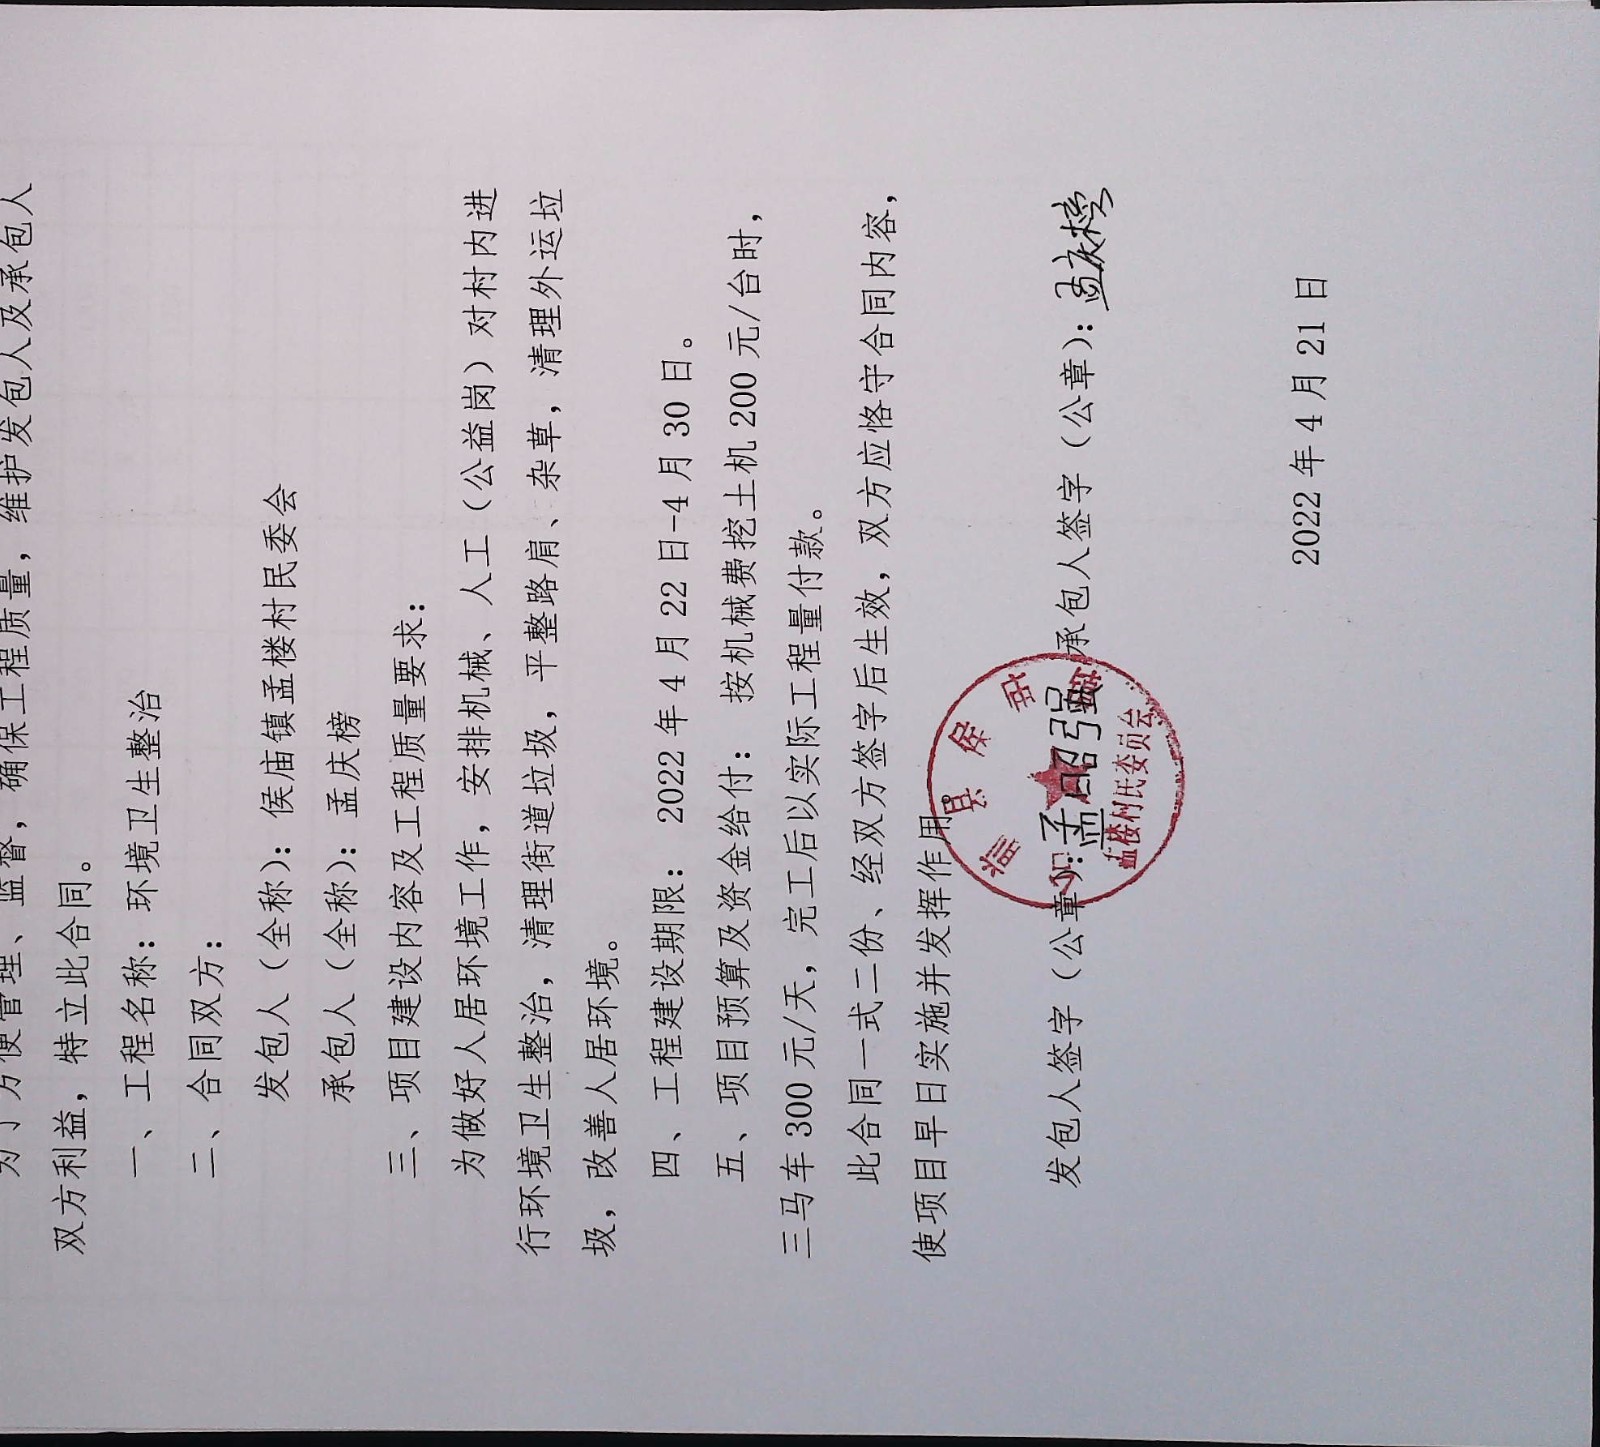 为了方便管理、监督，确保工程质量，维护发包人及承包人
双方利益，特立此合同。
一、工程名称：环境卫生整治
二、合同双方：
发包人（全称）：侯庙镇孟楼村民委会
承包人（全称）：孟庆榜
三、项目建设内容及工程质量要求：
为做好人居环境工作，安排机械、人工（公益岗）对村内进
行环境卫生整治，清理街道垃圾，平整路肩、杂草，清理外运垃
圾，改善人居环境。
四、工程建设期限：2022年4月22日-4月30日。
五、项目预算及资金给付：按机械费挖土机200元/台时，
三马车300元/天，完工后以实际工程量付款。
此合同一式二份、经双方签字后生效，双方应恪守合同内容，
使项目早日实施并发挥作用。
发包人签字（公章）：孟昭强 承包人签字（公章）：孟庆榜
县侯
孟楼村民委员会
2022年4月21日